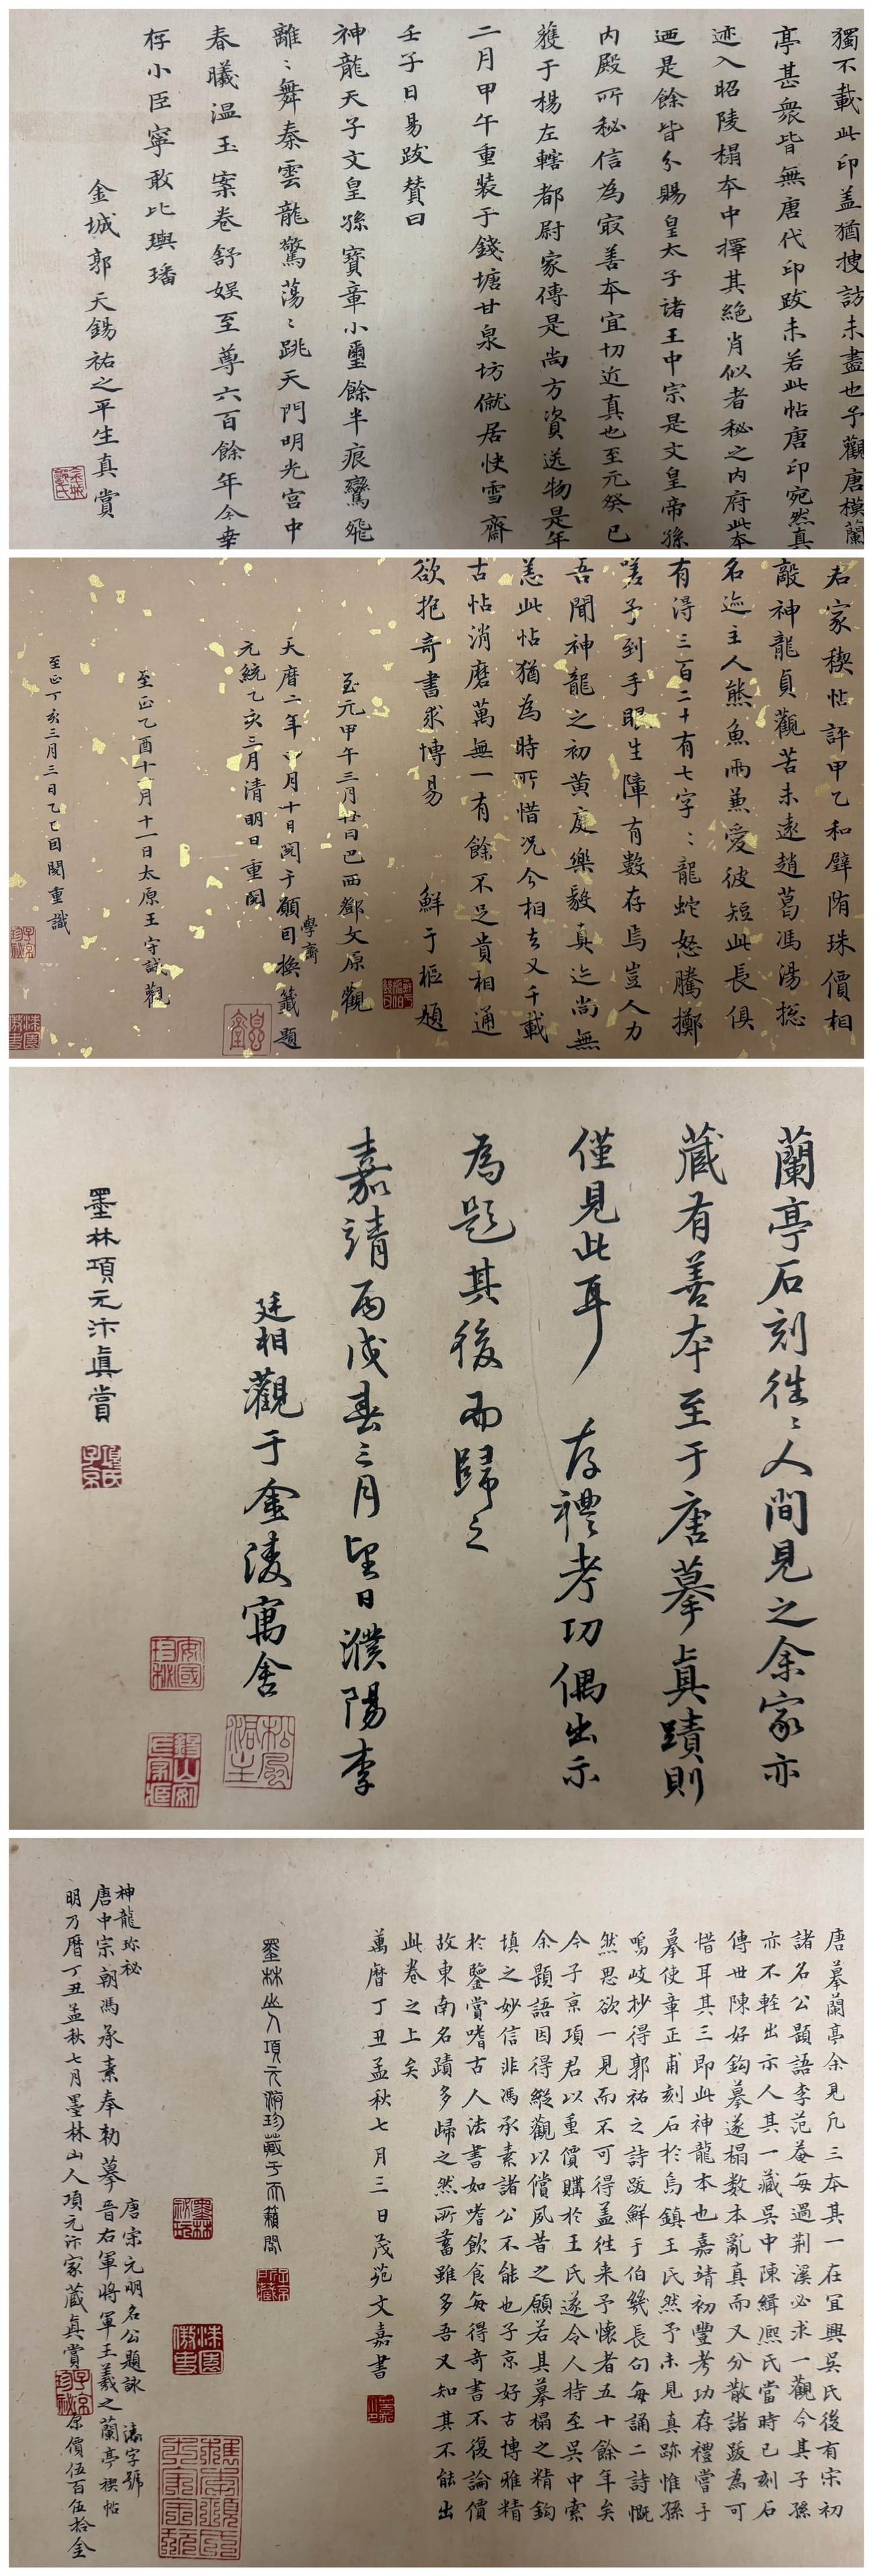 獨不載此印盖猶搜訪未盡也予觀唐模蘭
亭甚衆皆無唐代印跋未若此帖唐印宛然真
迹入昭陵榻本中擇其絶肖似者秘之内府此本
迺是餘皆分賜皇太子諸王中宗是文皇帝孫
内殿所秘信為㝡善本宜切近真也至元癸巳
獲于楊左轄都尉家傳是尚方資送物是年
二月甲午重装于錢塘甘泉坊僦居快雪齋
壬子日易跋贊曰
神龍天子文皇孫寳章小璽餘半痕鸞飛
離〻舞秦雲龍驚蕩〻跳天門明光宫中
春曦温玉案卷舒娱至尊六百餘年今幸
存小臣寧敢比璵璠
金城郭天錫祐之平生真賞
君家稧帖評甲乙和璧隋珠價相
敵神龍貞觀苦未遠趙葛馮湯揔
名迹主人熊魚兩兼愛彼短此長俱
有得三百二十有七字〻龍蛇怒騰擲
嗟予到手眼生障有數存焉豈人力
吾聞神龍之初黄庭樂毅真迹尚無
恙此帖猶為時所惜况今相去又千載
古帖消磨萬無一有餘不足貴相通
欲抱奇書求博易
鮮于樞題
至元甲午三月廿日巴西鄧文原觀
天曆二年八月十日閲于顒司換籤題
學齋
元統乙亥三月清明日重閲
至正乙酉十一月十一日太原王守誠觀
至正丁亥三月三日乙巳同閲重識
蘭亭石刻徃〻人間見之余家亦
藏有善本至于唐摹真蹟則
僅見此耳
存禮考功偶出示
為題其後而歸之
嘉靖丙戌春三月望日濮陽李
廷相觀于金陵寓舍
墨林項元汴真賞
唐摹蘭亭余見凡三本其一在宜興吳氏後有宋初
諸名公題語李范菴每過荆溪必求一觀今其子孫
亦不輕出示人其一藏吳中陳緝熈氏當時已刻石
傳世陳好鈎摹遂榻數本亂真而又分散諸跋為可
惜耳其三即此神龍本也嘉靖初豐考功存禮嘗手
摹使章正甫刻石於烏鎮王氏然予未見真跡惟孫
鳴岐抄得郭祐之詩跋鮮于伯幾長句每誦二詩慨
然思欲一見而不可得盖徃来予懷者五十餘年矣
今子京項君以重價購於王氏遂令人持至吳中索
余題語因得縱觀以償夙昔之願若其摹榻之精鈎
填之妙信非馮承素諸公不能也子京好古博雅精
於鑒賞嗜古人法書如嗜飲食每得奇書不復論價
故東南名蹟多歸之然所蓄雖多吾又知其不能出
此卷之上矣
萬曆丁丑孟秋七月三日茂苑文嘉書
墨林山人項元汴珍藏于天籟閣
神龍珍秘
唐宋元明名公題詠
濤字號
唐中宗朝馮承素奉勅摹晋右軍將軍王羲之蘭亭稧帖
明萬曆丁丑孟秋七月墨林山人項元汴家藏真賞
原價伍百伍拾金